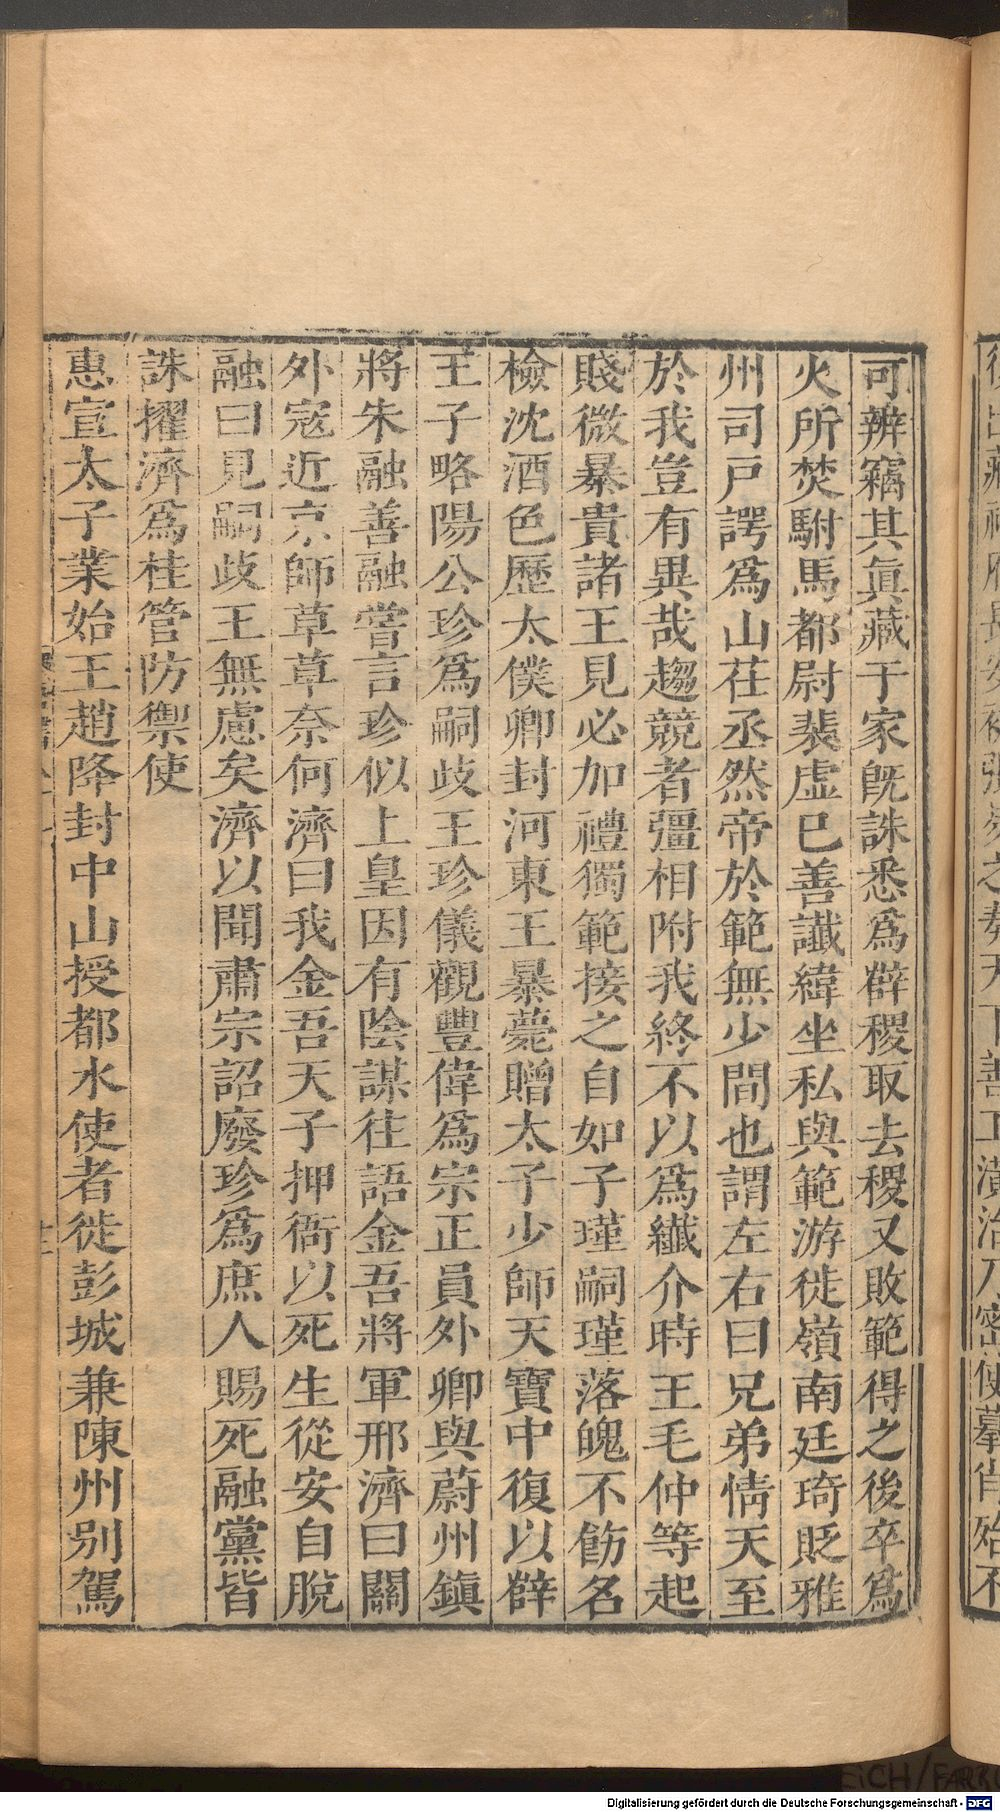 可辨竊其眞藏于家旣誅悉爲薛稷取去稷又敗範得之後卒爲
火所焚駙馬都尉裴虛巳善讖緯坐私與範游徙嶺南廷琦貶雅
州司戶諤爲山茌丞然帝於範無少間也謂左右曰兄弟情天至
於我豈有異哉趨競者彊相附我終不以爲纎介時王毛仲等起
賤微暴貴諸王見必加禮獨範接之自如子瑾嗣瑾落魄不飭名
檢沈酒色歷太僕卿封河東王暴薨贈太子少師天寶中復以薛
王子略陽公珍爲嗣歧王珍儀觀豐偉爲宗正員外卿與蔚州鎮
將朱融善融嘗言珍似上皇因有陰謀往語金吾將軍邢濟曰關
外寇近京師草草奈何濟曰我金吾天子押衙以死生從安自脫
融曰見嗣歧王無慮矣濟以聞肅宗詔廢珍爲庶人賜死融黨皆
誅擢濟爲桂管防禦使
惠宣太子業始王趙降封中山授都水使者徙彭城兼陳州别駕
Digitalisierung gefördert durch die Deutsche Forschungsgemeinschaft - DFG